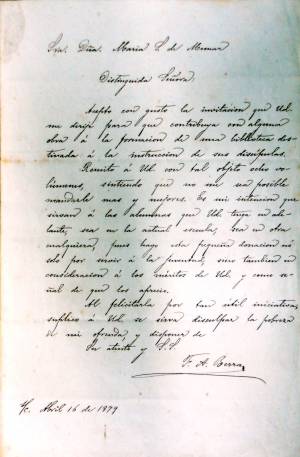 Sra. Dña. Maria S. de Munar
Distinguida Señora
Acepto con gusto la invitacion que Ud.
me dirije para que contribuya con alguna
obra á la formacion de una biblioteca des-
tinada á la instruccion de sus discípulas.
Remito á Ud. con tal objeto ocho vo-
lúmenes, sintiendo que no me sea posible
mandarle mas y mejores. Es mi intencion que
sirvan á las alumnas que Ud. tenga en ade-
lante, sea en la actual escuela, sea en otra
cualquiera, pues hago esta pequeña donacion no
solo por servir á la juventud, sino tambien en
consideracion á los méritos de Ud. y como se-
ñal de que los aprecio.
Al felicitarla por tan útil iniciativa,
suplico á Ud. se sirva disculpar la pobreza
de mi ofrenda, y disponer de
Su atento y S.S.
F. A. Berra
S/c. Abril 16 de 1879